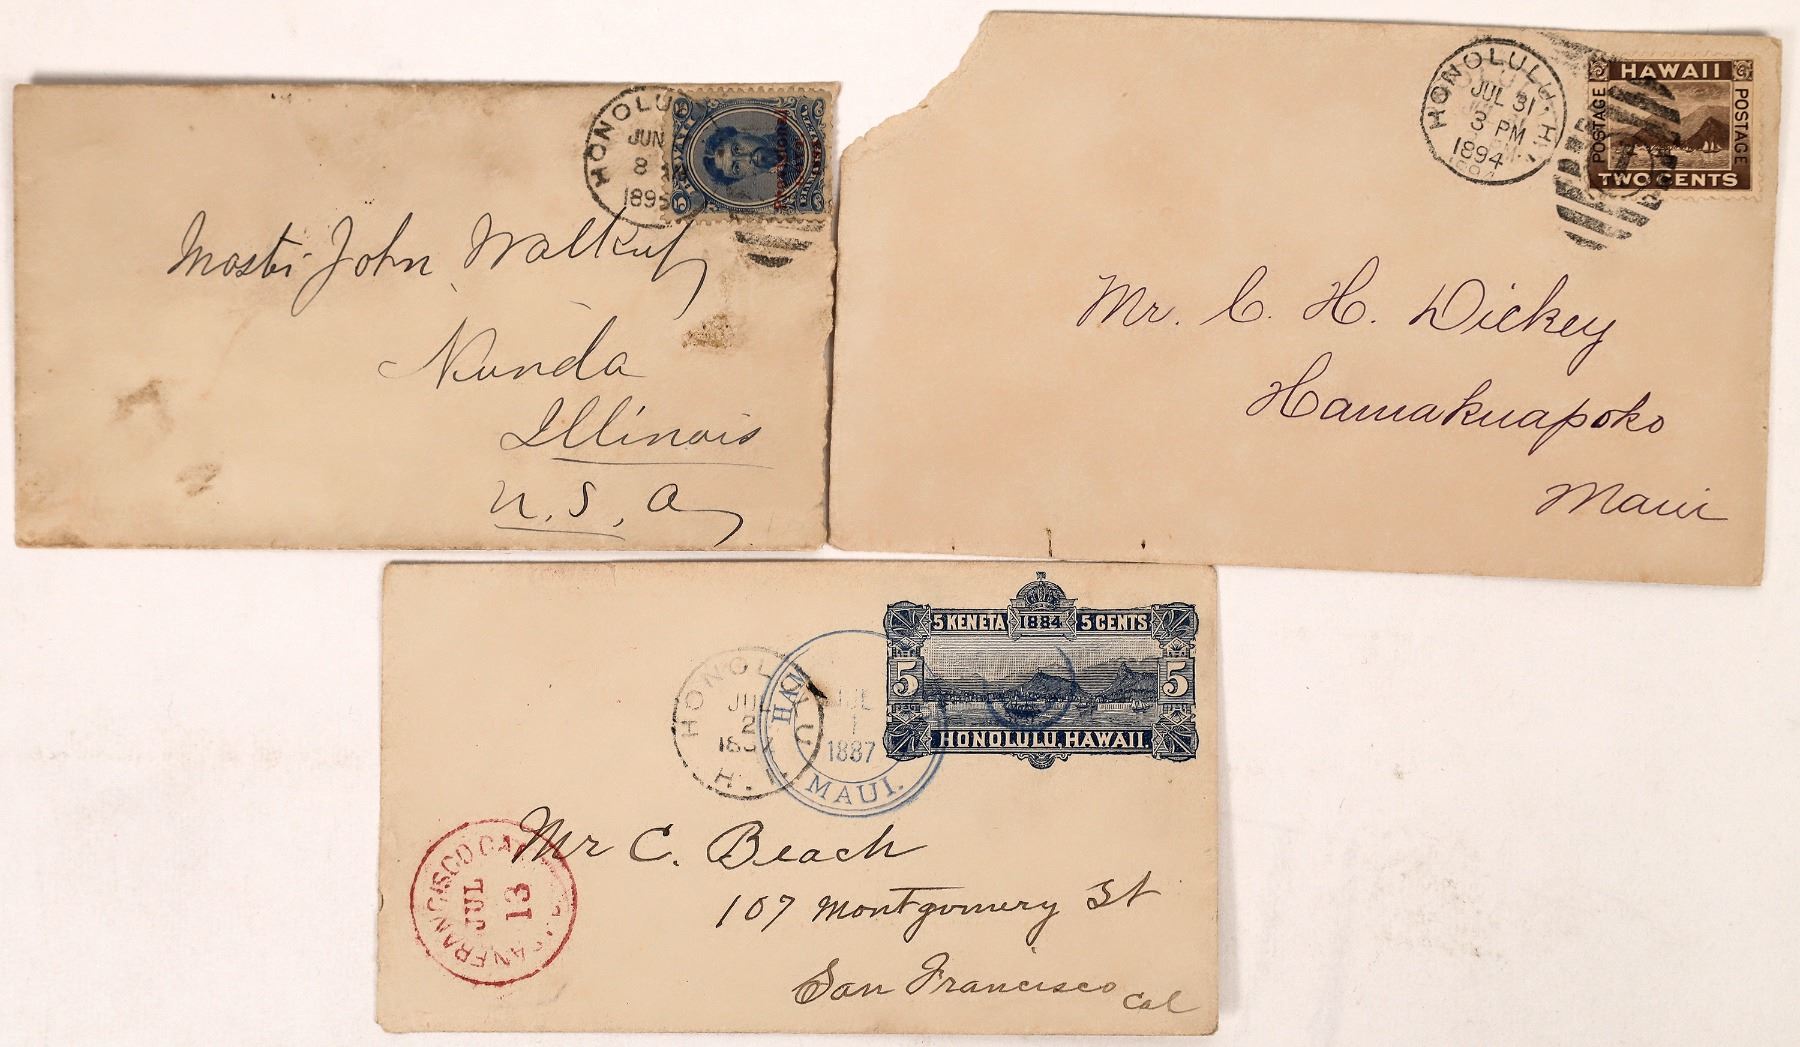 HONOLULU
JUN
8
1895
Provisional
Master John
Nunda
Illinois
U. S. A
HONOLULU H.I.
JUL 31
3 PM
1894
HAWAII
POSTAGE
POSTAGE
TWO CENTS
Mr. C. H. Dickey
Hamakuapoko
Maui
5 KENETA 1884 5 CENTS
5 5
HONOLULU, HAWAII.
HONOLULU
2
H.I.
JUL
1
1887
MAUI.
SAN FRANCISCO CAL
JUL
13
Mr C. Beach
107 Montgomery St
San Francisco Cal